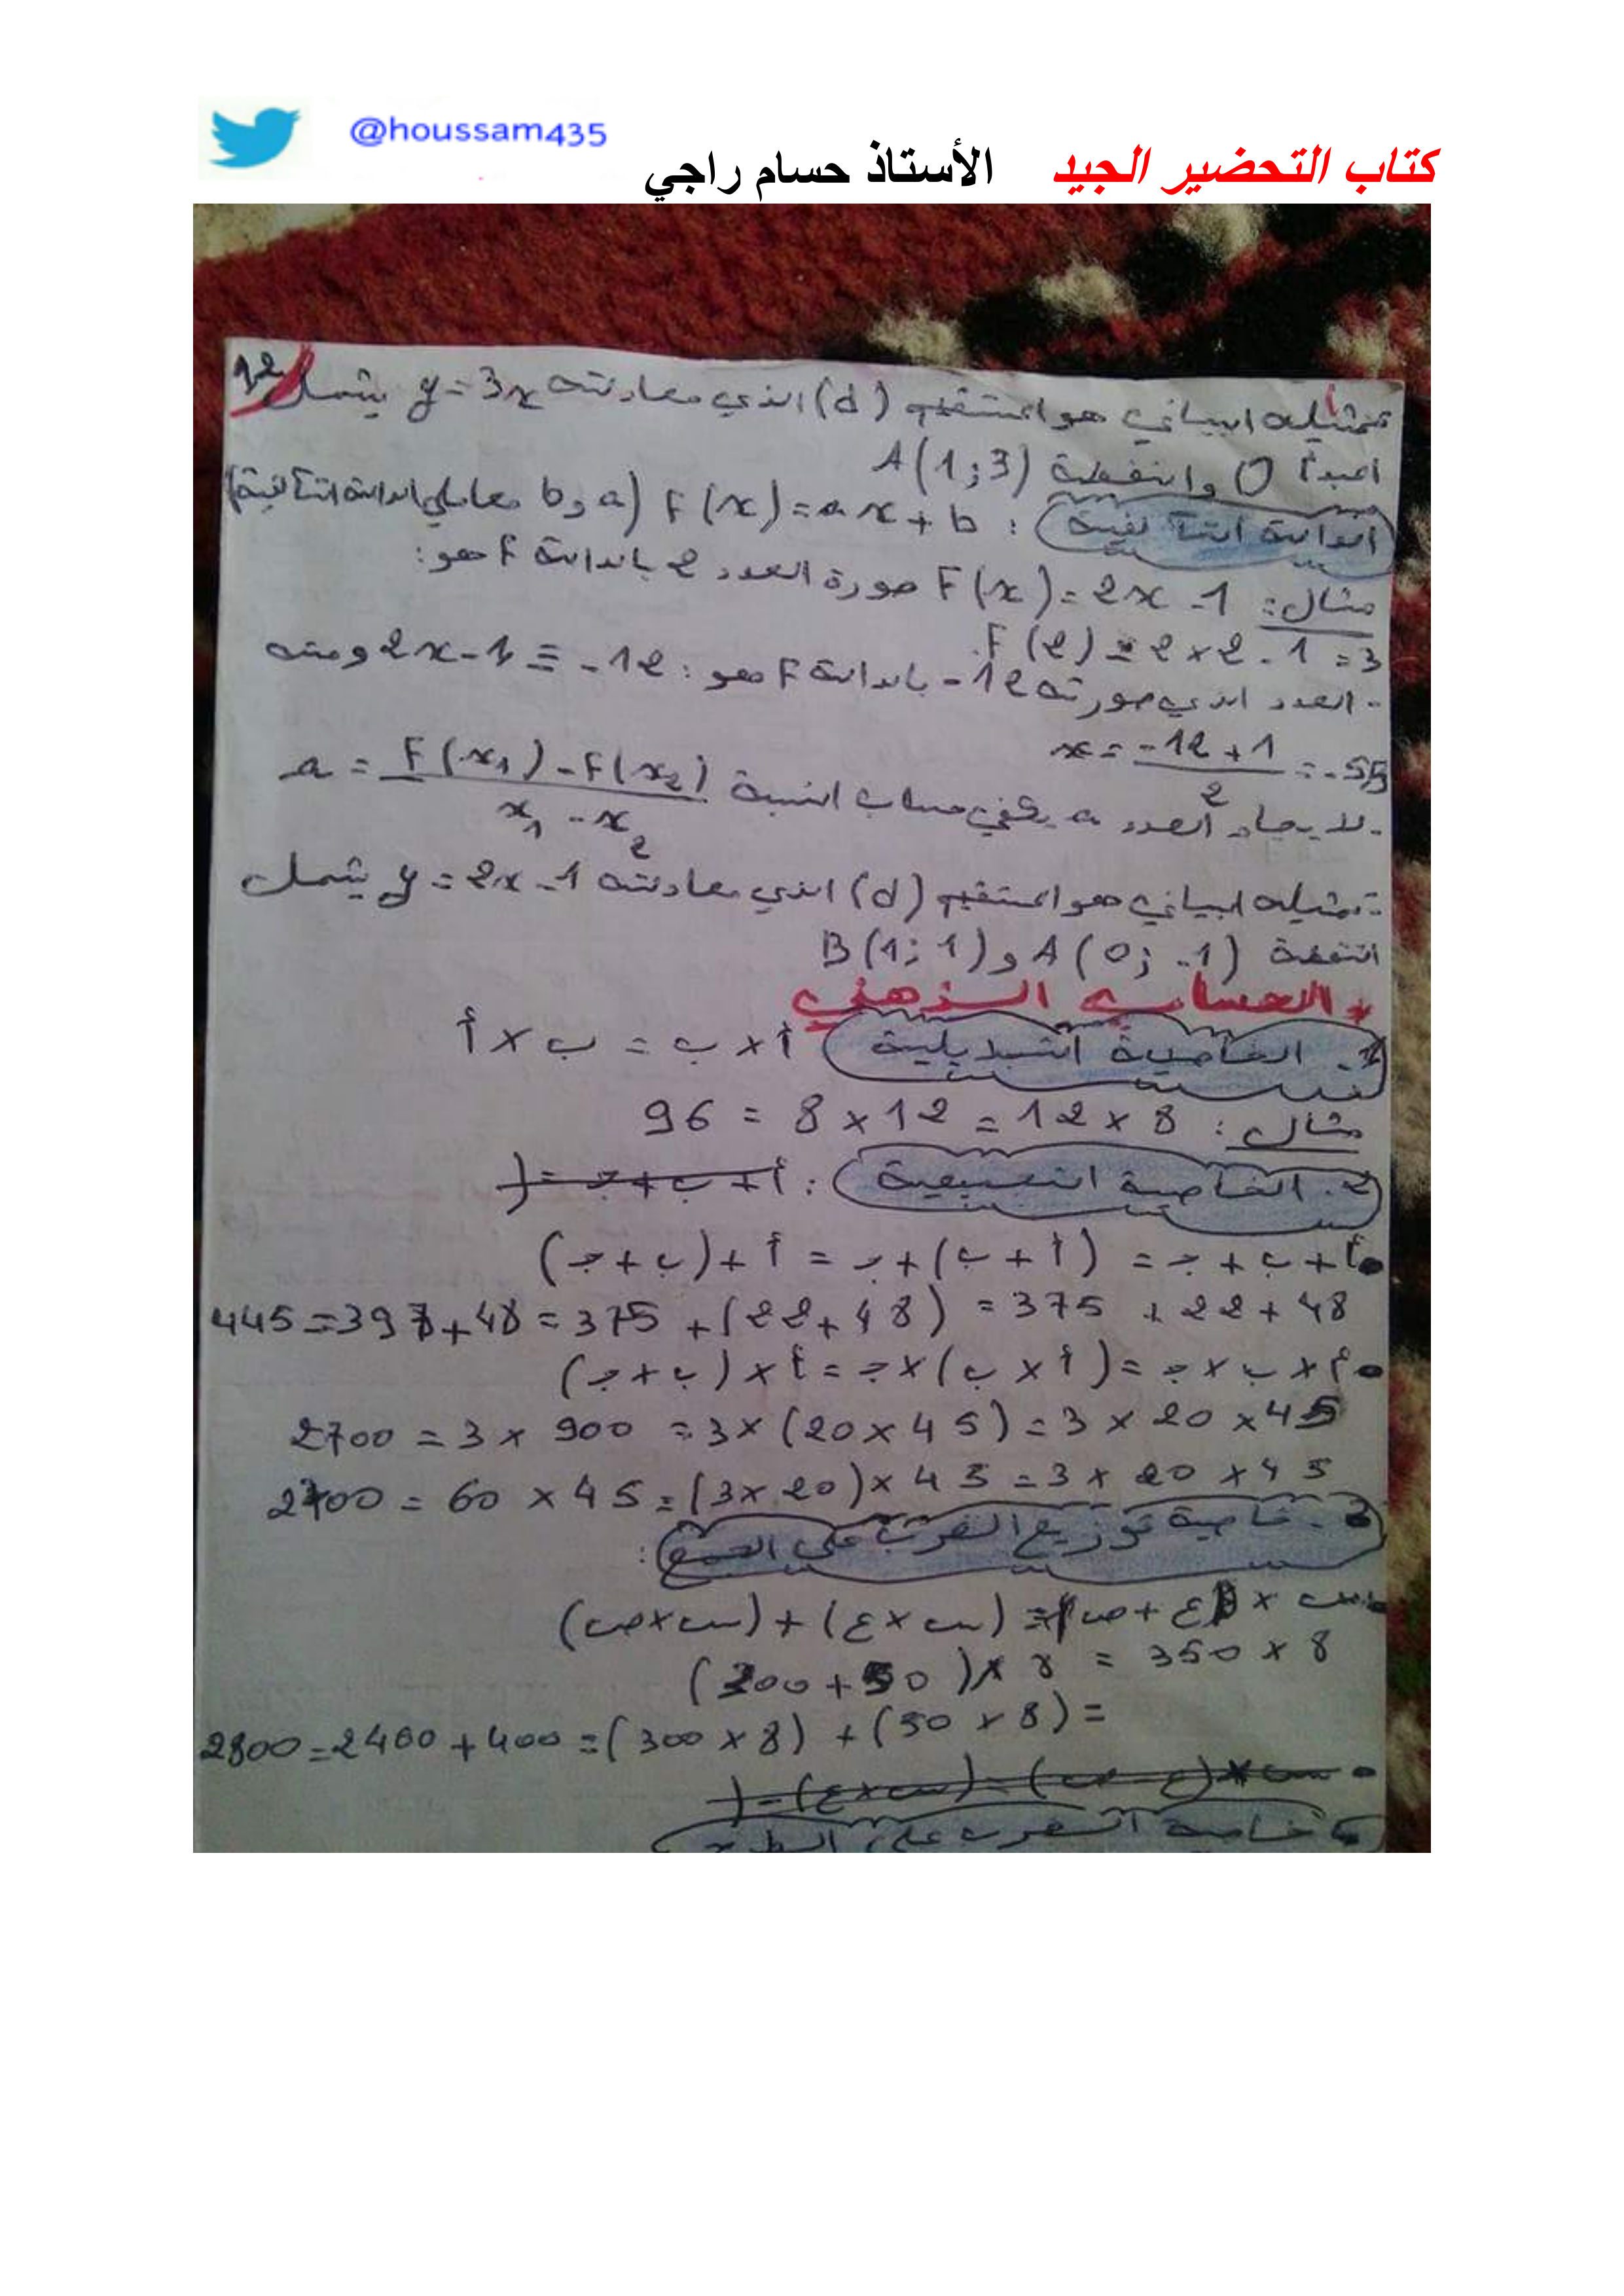 @houssam435
كتاب التحضير الجيد الأستاذ حسام راجي
12
تمثيله البياني هو المستقيم (d) الذي معادلته y = 3x يشمل
المبدأ O والنقطة A(1;3)
الدالة التآلفية : F(x) = ax + b (a و b معاملي الدالة التآلفية)
مثال: F(x) = 2x - 1 صورة العدد 2 بالدالة F هو:
F(2) = 2 × 2 - 1 = 3
- العدد الذي صورته 12- بالدالة F هو: 2x - 1 = -12 ومنه
x = (-12 + 1)/2 = -5,5
- لايجاد العدد a يكفي حساب النسبة a = (F(x1) - F(x2))/(x1 - x2)
- تمثيله البياني هو المستقيم (d) الذي معادلته y = 2x - 1 يشمل
النقطة A(0; -1) و B(1; 1)
* الحساب الذهني
1. الخاصية التبديلية أ × ب = ب × أ
مثال: 8 × 12 = 12 × 8 = 96
2. الخاصية التجميعية : أ + ب + جـ = (
• أ + ب + جـ = (أ + ب) + جـ = أ + (ب + جـ)
445 = 397 + 48 = 375 + (22 + 48) = 375 + 22 + 48
• أ × ب × جـ = (أ × ب) × جـ = أ × (ب + جـ)
2700 = 3 × 900 = 3 × (20 × 45) = 3 × 20 × 45
2700 = 60 × 45 = (3 × 20) × 45 = 3 × 20 × 45
3. خاصية توزيع الضرب على الجمع :
• س × (ع + ص) = (س × ع) + (س × ص)
(300 + 50) × 8 = 350 × 8
2800 = 2400 + 400 = (300 × 8) + (50 × 8) =
• س × (ع - ص) = (س × ع) - (
خاصية الضرب على الطرح